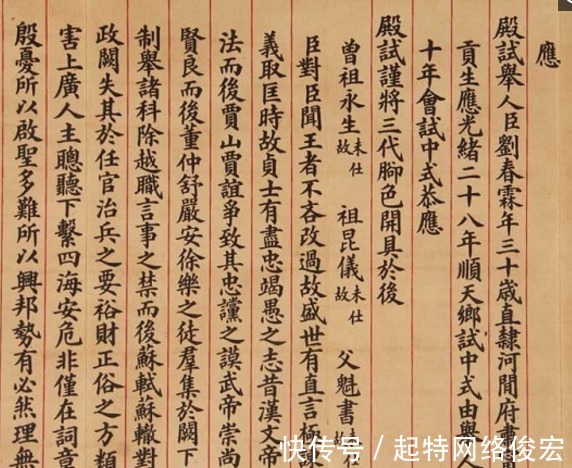 應
殿試舉人臣劉春霖年三十歲直隸河間府
貢生應光緒二十八年順天鄉試中式由舉人
十年會試中式恭應
殿試謹將三代腳色開具於後
曾祖永生未仕故 祖昆儀未仕故 父魁書
臣對臣聞王者不吝改過故盛世有直言極
義取匡時故貞士有盡忠竭愚之志昔漢文帝
法而後賈山賈誼爭致其忠讜之謨武帝崇尚
賢良而後董仲舒嚴安徐樂之徒羣集於闕下
制舉諸科除越職言事之禁而後蘇軾蘇轍對
政闕失其於任官治兵之要裕財正俗之方類
害上廣人主聰聽下繫四海安危非僅在詞章
殷憂所以啟聖多難所以興邦勢有必然理無
快传号 / 起特网络俊宏